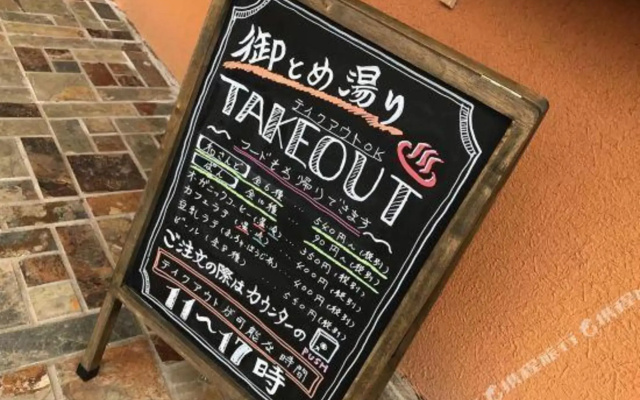 御とめ湯り
テイクアウトOK
TAKEOUT
フードもお持ち帰りできます
全6種 ... 540円〜(税別)
ぱん 全10種 ... 90円〜(税別)
オーガニックコーヒー(温・冷) ... 350円(税別)
カフェラテ(温・冷) ... 400円(税別)
豆乳ラテ ... 400円(税別)
ビール(全8種) ... 550円(税別)
ご注文の際はカウンターの
PUSH
テイクアウトが可能な時間
11〜17時